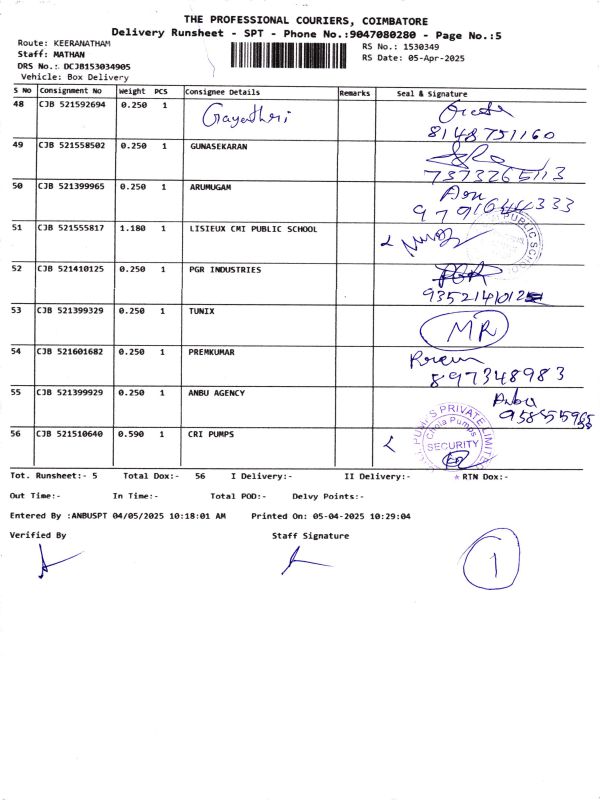 THE PROFESSIONAL COURIERS, COIMBATORE
Delivery Runsheet - SPT - Phone No.:9047080280 - Page No.:5
Route: KEERANATHAM
Staff: MATHAN
DRS No.: DCJB153034905
Vehicle: Box Delivery
RS No.: 1530349
RS Date: 05-Apr-2025
S No Consignment No Weight PCS Consignee Details Remarks Seal & Signature
48 CJB 521592694 0.250 1 Gayathri
8148751160
49 CJB 521558502 0.250 1 GUNASEKARAN
7373265113
50 CJB 521399965 0.250 1 ARUMUGAM
51 CJB 521555817 1.180 1 LISIEUX CMI PUBLIC SCHOOL
PUBLIC SCHOOL
52 CJB 521410125 0.250 1 PGR INDUSTRIES
PGR
53 CJB 521399329 0.250 1 TUNIX
MR
54 CJB 521601682 0.250 1 PREMKUMAR
897348983
55 CJB 521399929 0.250 1 ANBU AGENCY
Anbu
56 CJB 521510640 0.590 1 CRI PUMPS
PUMPS PRIVATE LIMITED
Chola Pumps
SECURITY
Tot. Runsheet:- 5 Total Dox:- 56 I Delivery:- II Delivery:- * RTN Dox:-
Out Time:- In Time:- Total POD:- Delvy Points:-
Entered By :ANBUSPT 04/05/2025 10:18:01 AM Printed On: 05-04-2025 10:29:04
Verified By Staff Signature
1